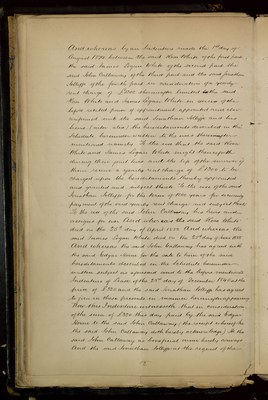 And whereas by an Indenture made the 1st day of
August 1890 between the said Ann White of the first part
the said James Logan White of the second part the
said John Callaway of the third part and the said Jonathan
Jelliffe of the fourth part in consideration of a yearly
rent charge of £200 thereinafter limited to the said
Ann White and James Logan White in exercise of the
last recited power of appointment appointed and
unto the said Jonathan Jelliffe and his
heirs (inter alia) the hereditaments described in the
Schedule hereunder written To the uses thereinafter
mentioned namely To the use that the said Ann
White and James Logan White might thenceforth
during their joint lives and the life of the survivor of
them receive a yearly rent charge of £200 to be
charged upon the hereditaments thereby appointed
and granted and subject thereto To the use of the said
Jonathan Jelliffe for the term of 200 years for securing
payment of the said yearly rent charge and subject thereto
To the use of the said John Callaway his heirs and
assigns for ever And whereas the said Ann White
died on the 25th day of April And whereas the
said James Logan White died on the
And whereas the said John Callaway has agreed with
the said Edgar Horne for the sale to him of the said
hereditaments described in the Schedule hereunder
written subject as aforesaid and to the before mentioned
Indenture of Lease of the 25th day of November at the
price of £350 and the said Jonathan Jelliffe has agreed
to join in these presents in manner hereinafter appearing
Now this Indenture witnesseth that in consideration
of the sum of £350 this day paid by the said Edgar
Horne to the said John Callaway (the receipt whereof he
the said John Callaway doth hereby acknowledge) He the
said John Callaway as beneficial owner hereby conveys
And the said Jonathan Jelliffe at the request of the